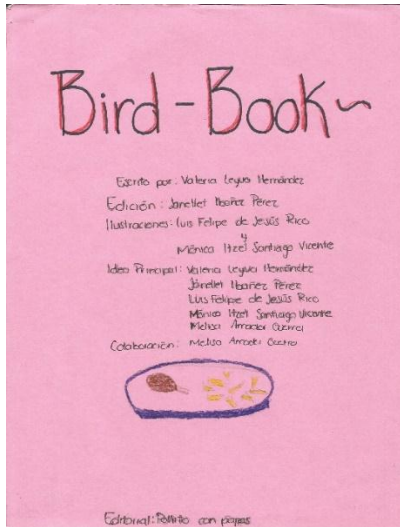 Bird-Book~
Escrito por: Valeria Leyva Hernández
Edición: Janellet Ibañez Pérez
Ilustraciones: Luis Felipe de Jesús Rico
y
Mónica Itzel Santiago Vicente
Idea Principal: Valeria Leyva Hernández
Janellet Ibañez Pérez
Luis Felipe de Jesús Rico
Mónica Itzel Santiago Vicente
Melisa Amador Castro
Colaboración: Melisa Amador Castro
Editorial: Pollito con papas